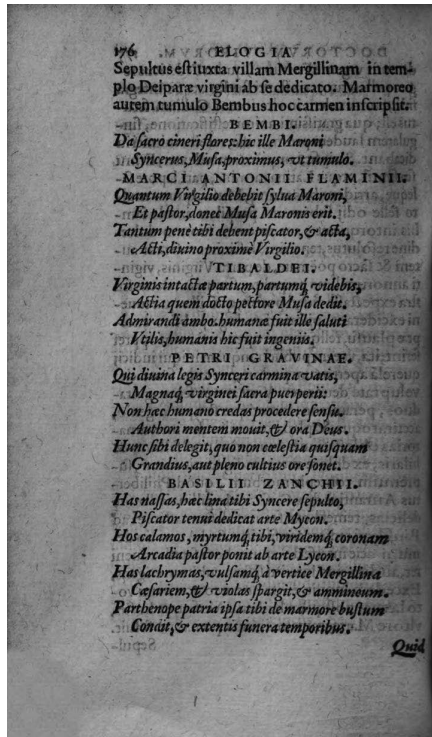 176 ELOGIA
Sepultus est iuxta villam Mergillinam in tem-
plo Deiparæ virgini ab se dedicato. Marmoreo
autem tumulo Bembus hoc carmen inscripsit.
BEMBI.
Da sacro cineri flores: hic ille Maroni
Syncerus, Musa, proximus, vt tumulo.
MARCI ANTONII FLAMINII.
Quantum Virgilio debebit sylua Maroni,
Et pastor, donec Musa Maronis erit.
Tantum penè tibi debent piscator, & acta,
Acti, diuino proxime Virgilio.
TIBALDEI.
Virginis intactæ partum, partumq́; videbis,
Actia quem docto pectore Musa dedit.
Admirandi ambo. humanæ fuit ille saluti
Vtilis, humanis hic fuit ingeniis.
PETRI GRAVINAE.
Qui diuina legis Synceri carmina vatis,
Magnaq́; virginei sacra puerperii:
Non hæc humano credas procedere sensu.
Authori mentem mouit, & ora Deus.
Hunc sibi delegit, quo non cœlestia quisquam
Grandius, aut pleno cultius ore sonet.
BASILII ZANCHII.
Has nassas, hæc lina tibi Syncere sepulto,
Piscator tenui dedicat arte Mycon.
Hos calamos, myrtumq́; tibi, viridemq́; coronam
Arcadia pastor ponit ab arte Lycon.
Has lachrymas, vulsamq́; à vertice Mergillina
Cæsariem, & violas spargit, & ammineum.
Parthenope patria ipsa tibi de marmore bustum
Condit, & extentis funera temporibus.
Quid